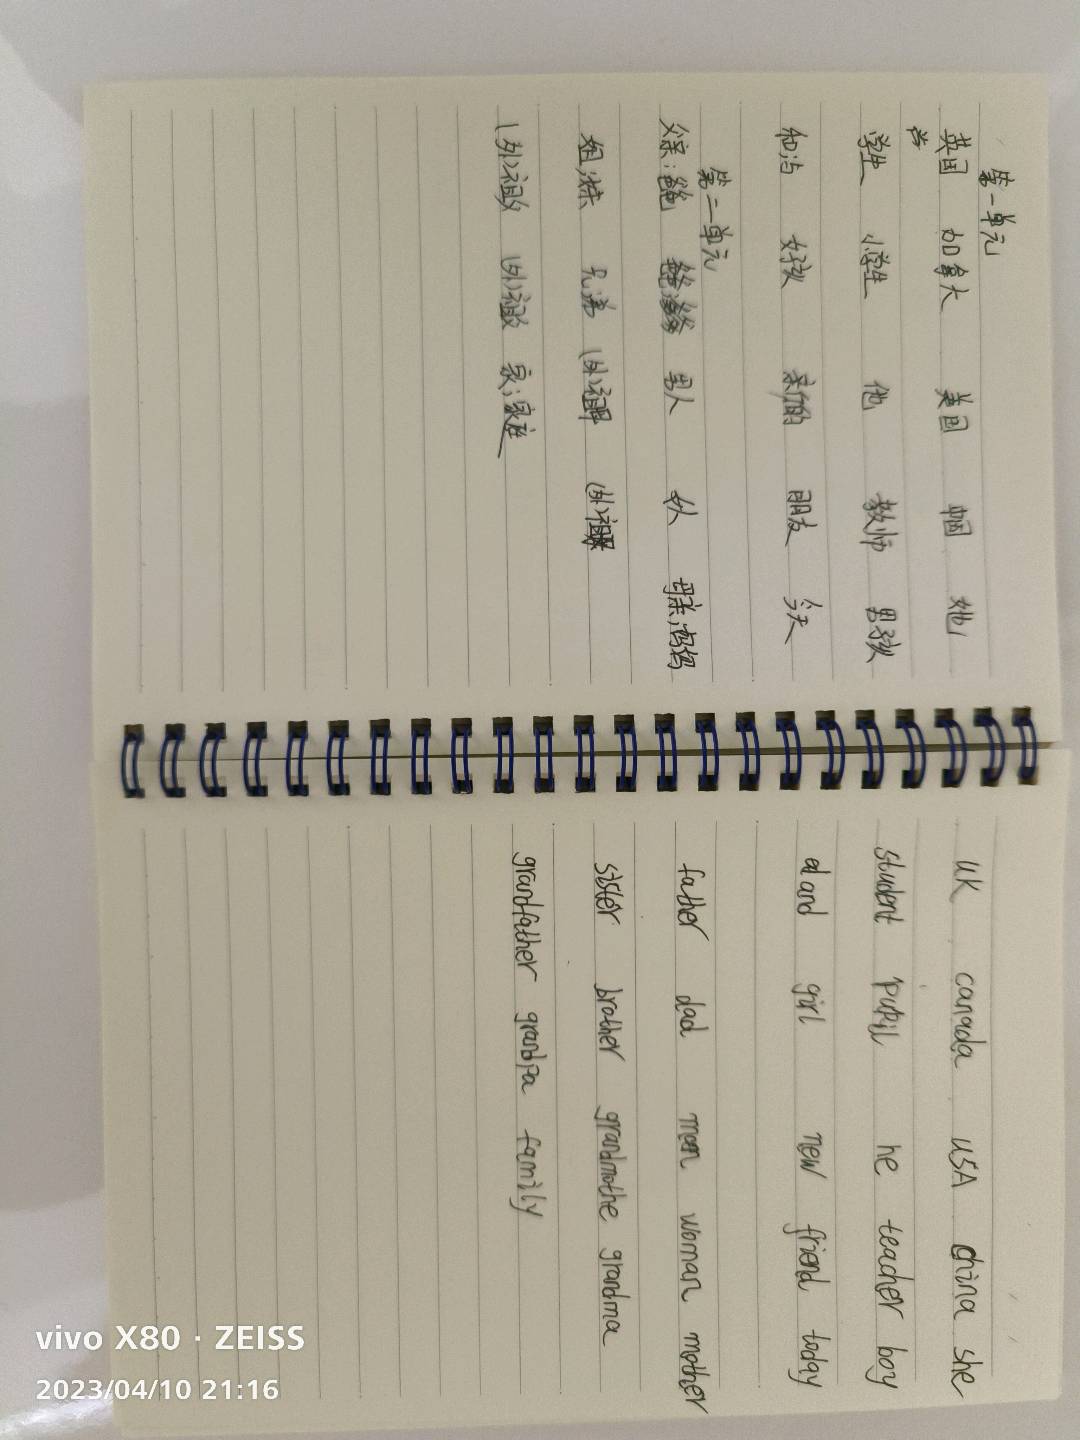 第一单元
英国 加拿大 美国 中国 她
学生 小学生 他 教师 男孩
和;与 女孩 新的 朋友 今天
第二单元
父亲;爸爸 男人 女人 母亲;妈妈
姐;妹 兄;弟 (外)祖母 (外)祖母
(外)祖父 (外)祖父 家;家庭
UK canada USA china she
student pupil he teacher boy
and girl new friend today
father dad man woman mother
sister brother grandmothe grandma
grandfather grandpa family
vivo X80 · ZEISS
2023/04/10 21:16